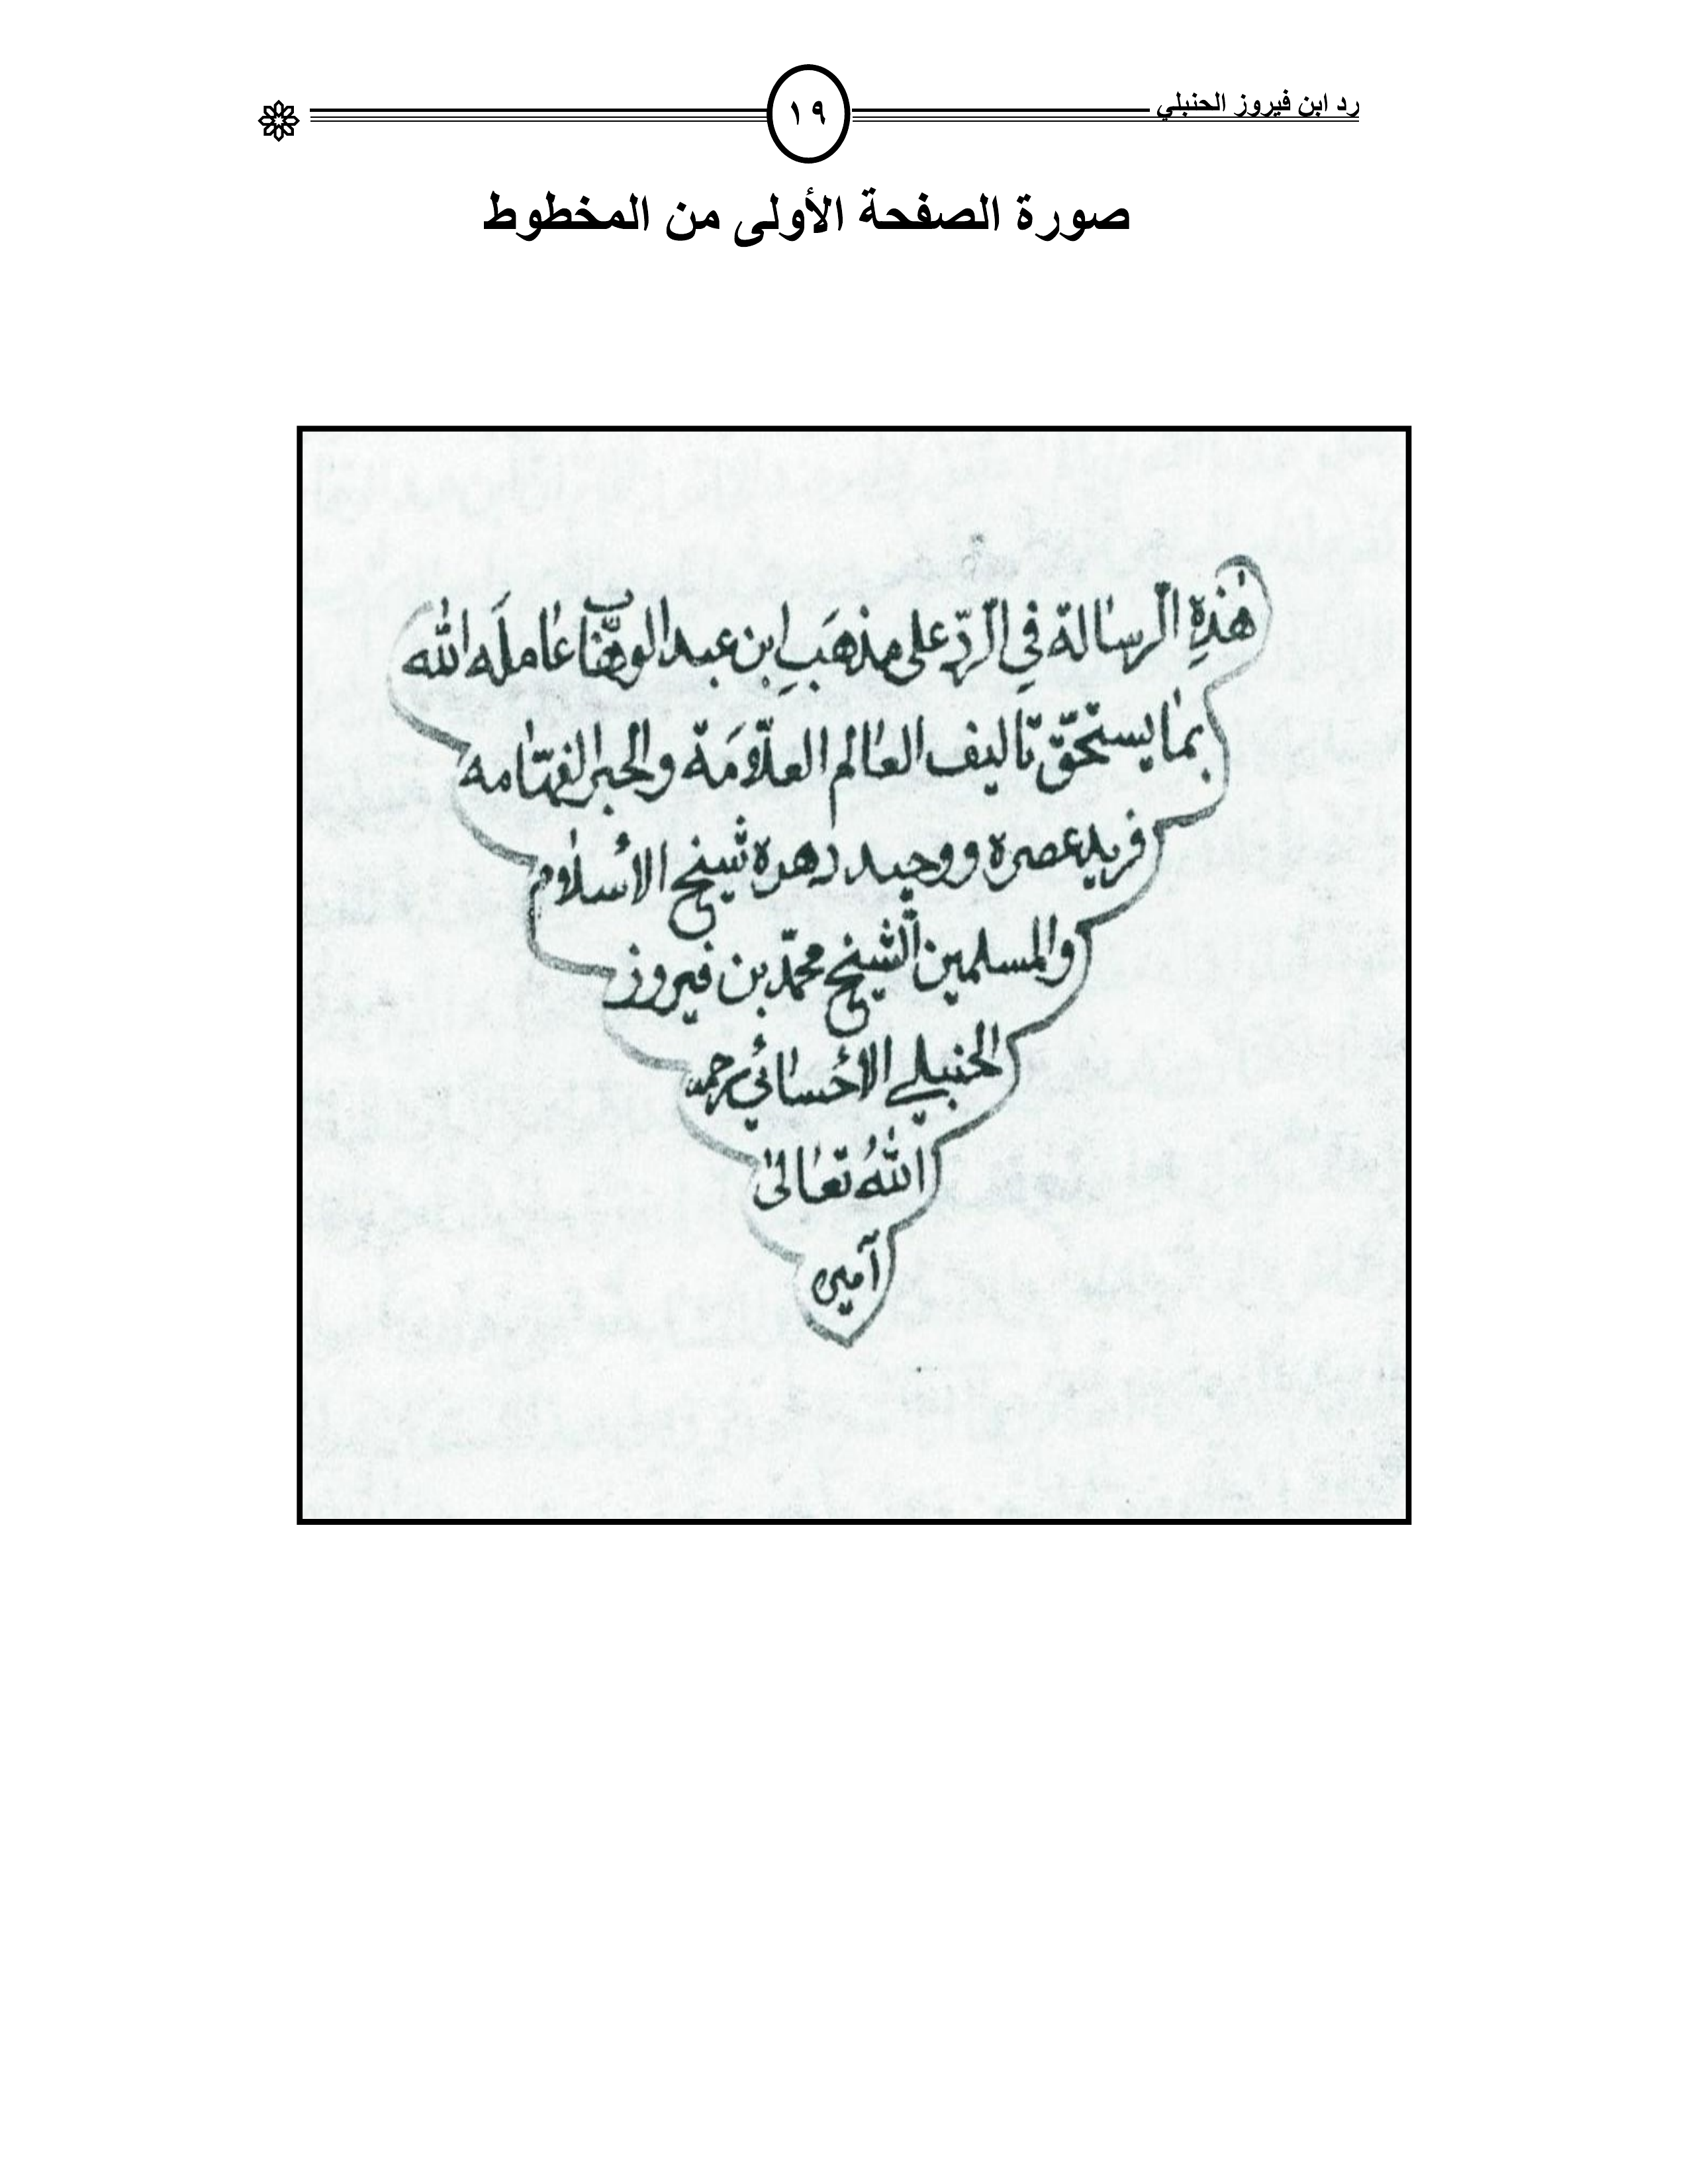 رد ابن فيروز الحنبلي
١٩
صورة الصفحة الأولى من المخطوط
هٰذِهِ الرسالة في الرّد على مذهَبِ ابن عبد الوهّاب عامله الله
بما يستحقّ تاليف العالم العلّامَة والحبر الفهّامه
فريد عصره ووحيد دهره شيخ الأسلام
والمسلمين الشيخ محمّد بن فيروز
الحنبلي الأحسائي رحمه
اللهُ تعالى
آمين